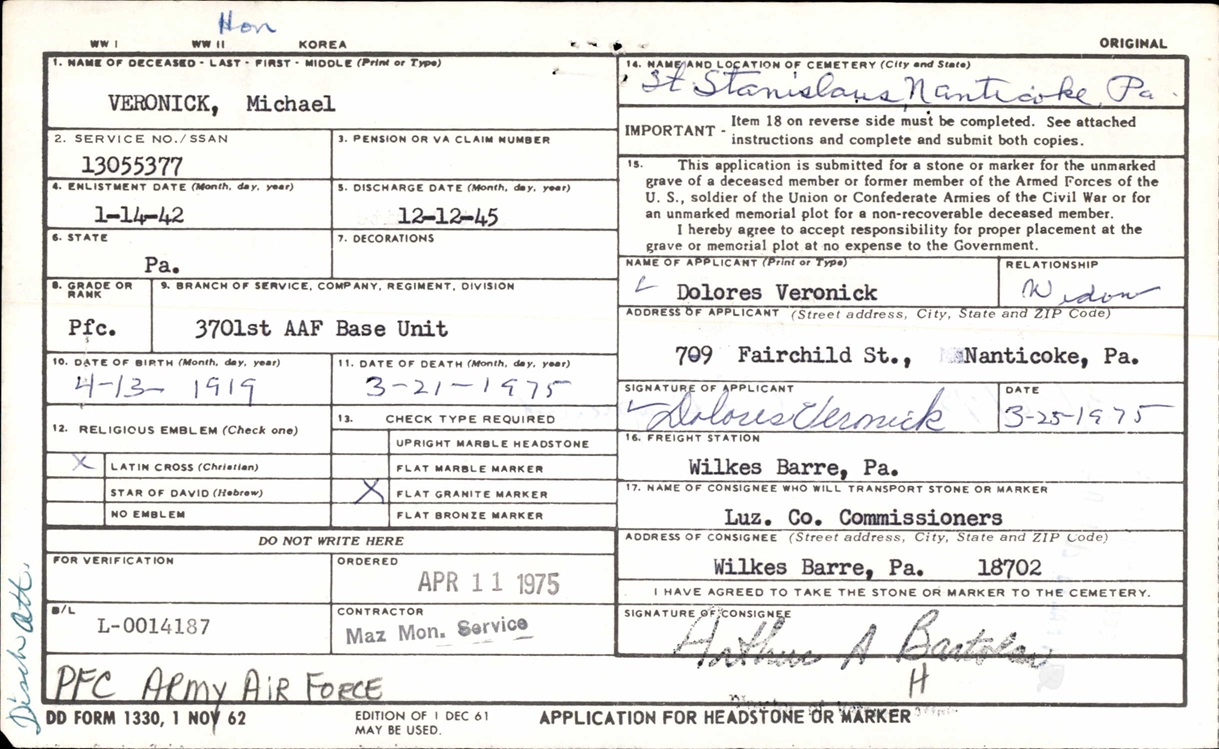 Hon
WW I WW II KOREA ORIGINAL
1. NAME OF DECEASED - LAST - FIRST - MIDDLE (Print or Type)
VERONICK, Michael
2. SERVICE NO./SSAN
13055377
3. PENSION OR VA CLAIM NUMBER
4. ENLISTMENT DATE (Month, day, year)
1-14-42
5. DISCHARGE DATE (Month, day, year)
12-12-45
6. STATE
Pa.
7. DECORATIONS
8. GRADE OR RANK
Pfc.
9. BRANCH OF SERVICE, COMPANY, REGIMENT, DIVISION
3701st AAF Base Unit
10. DATE OF BIRTH (Month, day, year)
4-13- 1919
11. DATE OF DEATH (Month, day, year)
3-21-1975
12. RELIGIOUS EMBLEM (Check one)
X LATIN CROSS (Christian)
STAR OF DAVID (Hebrew)
NO EMBLEM
13. CHECK TYPE REQUIRED
UPRIGHT MARBLE HEADSTONE
FLAT MARBLE MARKER
X FLAT GRANITE MARKER
FLAT BRONZE MARKER
DO NOT WRITE HERE
FOR VERIFICATION
ORDERED
APR 11 1975
B/L
L-0014187
CONTRACTOR
Maz Mon. Service
PFC ARMY AIR FORCE
Disch Att.
14. NAME AND LOCATION OF CEMETERY (City and State)
St Stanislaus, Nanticoke, Pa.
IMPORTANT - Item 18 on reverse side must be completed. See attached
instructions and complete and submit both copies.
15. This application is submitted for a stone or marker for the unmarked
grave of a deceased member or former member of the Armed Forces of the
U. S., soldier of the Union or Confederate Armies of the Civil War or for
an unmarked memorial plot for a non-recoverable deceased member.
I hereby agree to accept responsibility for proper placement at the
grave or memorial plot at no expense to the Government.
NAME OF APPLICANT (Print or Type)
Dolores Veronick
RELATIONSHIP
Widow
ADDRESS OF APPLICANT (Street address, City, State and ZIP Code)
709 Fairchild St., Nanticoke, Pa.
SIGNATURE OF APPLICANT
Dolores Veronick
DATE
3-25-1975
16. FREIGHT STATION
Wilkes Barre, Pa.
17. NAME OF CONSIGNEE WHO WILL TRANSPORT STONE OR MARKER
Luz. Co. Commissioners
ADDRESS OF CONSIGNEE (Street address, City, State and ZIP Code)
Wilkes Barre, Pa. 18702
I HAVE AGREED TO TAKE THE STONE OR MARKER TO THE CEMETERY.
SIGNATURE OF CONSIGNEE
Arthur A
H
DD FORM 1330, 1 NOV 62
EDITION OF 1 DEC 61
MAY BE USED.
APPLICATION FOR HEADSTONE OR MARKER